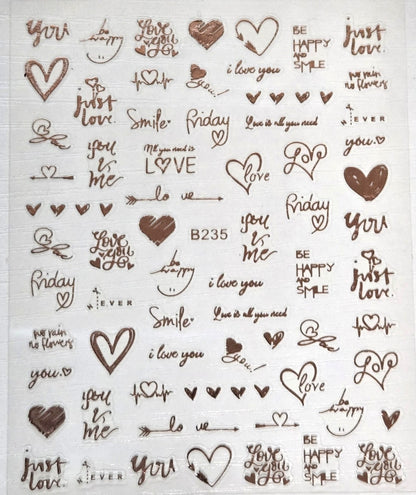 you
be
happy
Love
you
BE
HAPPY
AND
SMILE
just
love.
i love you
you!
no rain
no flowers
just
love.
Smile
Friday
Love is all you need
EVER
you.
you
&
me
All you need is
LOVE
love
Love
lo ve
Friday
you
B235
you
&
me
Love
you
be
happy
i love you
BE
HAPPY
AND
SMILE
just
love.
Friday
EVER
Smile
Love is all you need
no rain
no flowers
i love you
you!
you.
love
Love
you
&
me
be
happy
lo ve
just
love.
EVER
you
Love
you
BE
HAPPY
AND
SMILE
Love
you